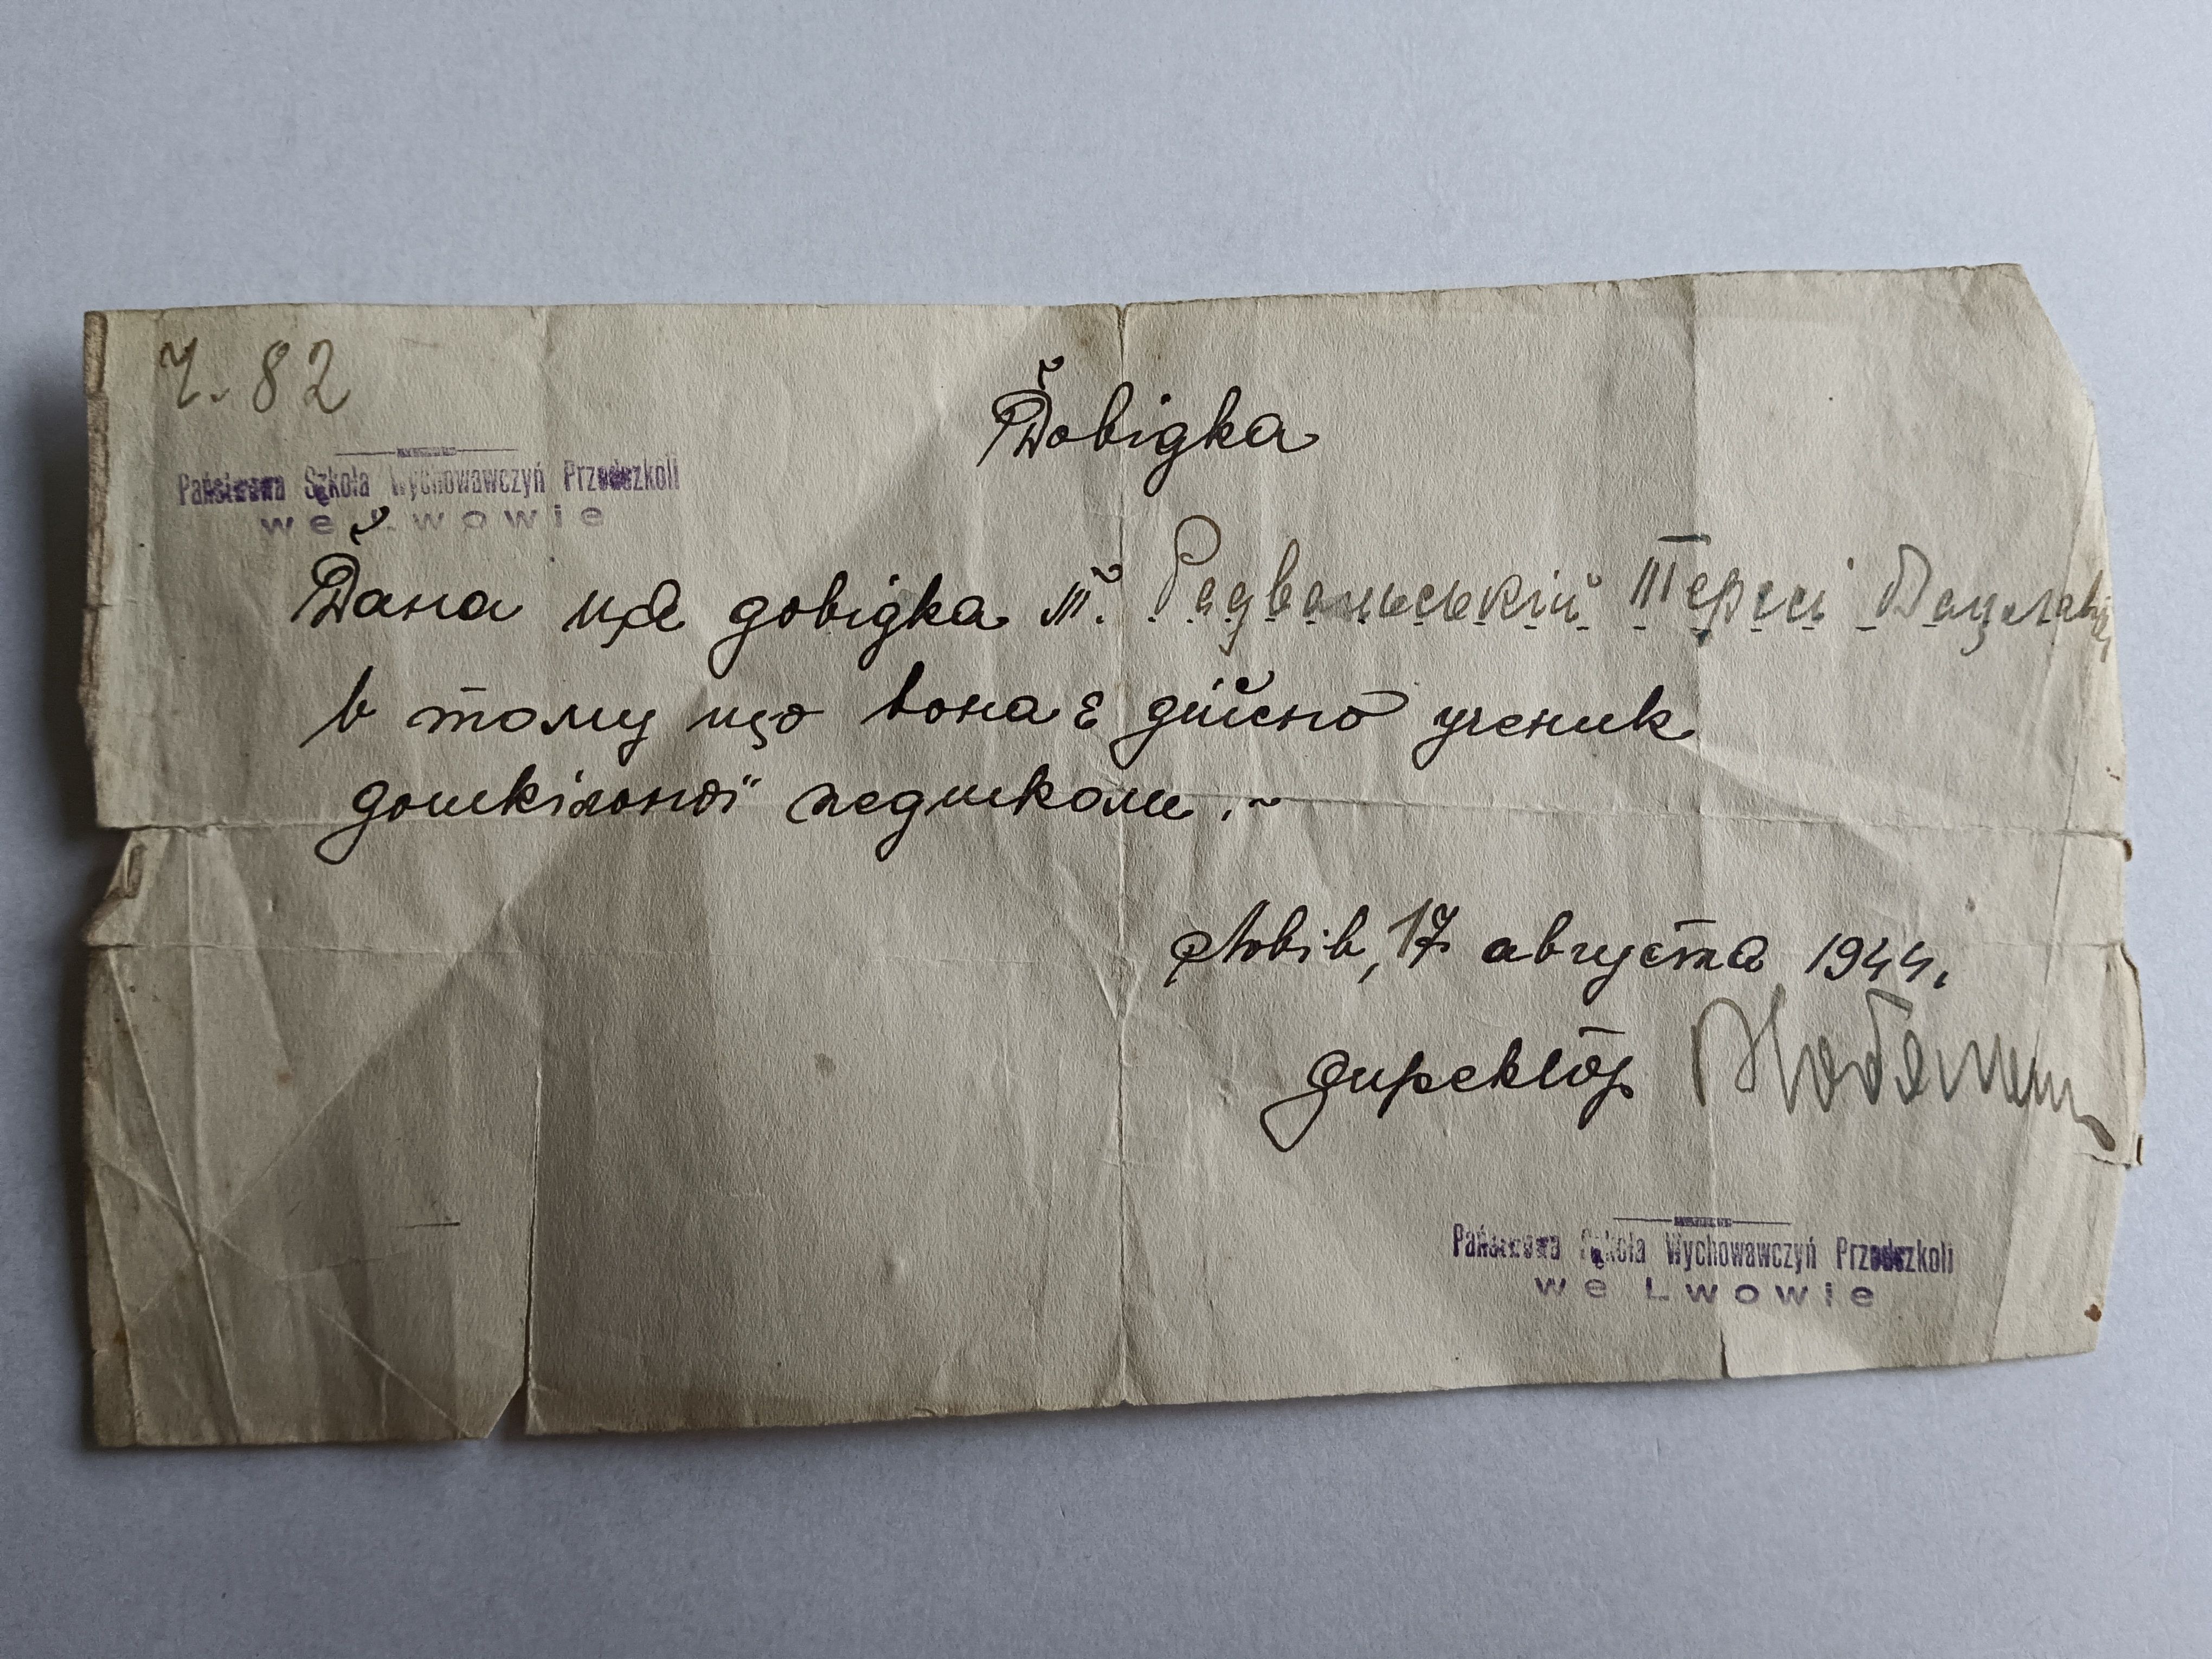 Ч. 82
Довідка
Państwowa Szkoła Wychowawczyń Przedszkoli
we Lwowie
Дана ця довідка т. Радваньській Тересі Вацлавів
в тому що вона є дійсно ученик
дошкільної педшколи.~
Львів, 17 августа 1944.
директор
Państwowa Szkoła Wychowawczyń Przedszkoli
we Lwowie